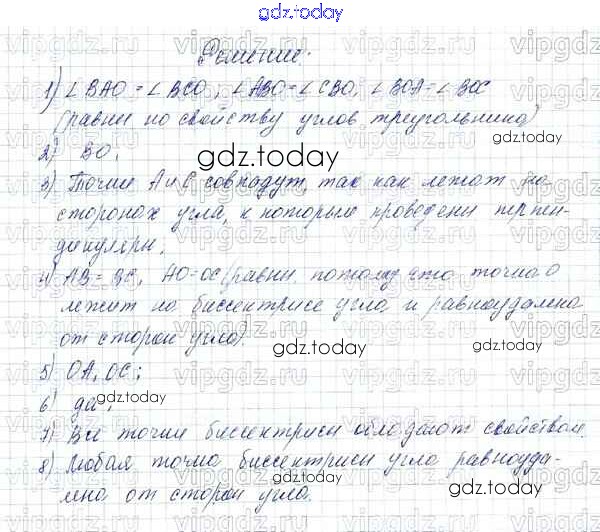 gdz.today
Решение.
1) ∠BAO = ∠BCO; ∠ABO = ∠CBO, ∠BOA = ∠BOC
(равны по свойству углов треугольника)
2) BO;
gdz.today
3) Точки A и C совпадут, так как лежат на
сторонах угла, к которые проведены перпен-
дикуляры;
gdz.today
4) AB = BC, AO = OC (равны, потому что точка O
лежит на биссектрисе угла, и равноудалена
от сторон угла)
gdz.today
5) OA, OC;
6) да;
gdz.today
gdz.today
7) Все точки биссектрисы обладают свойством.
8) Любая точка биссектрисы угла равноуда-
лена от сторон угла.
gdz.today
gdz.today